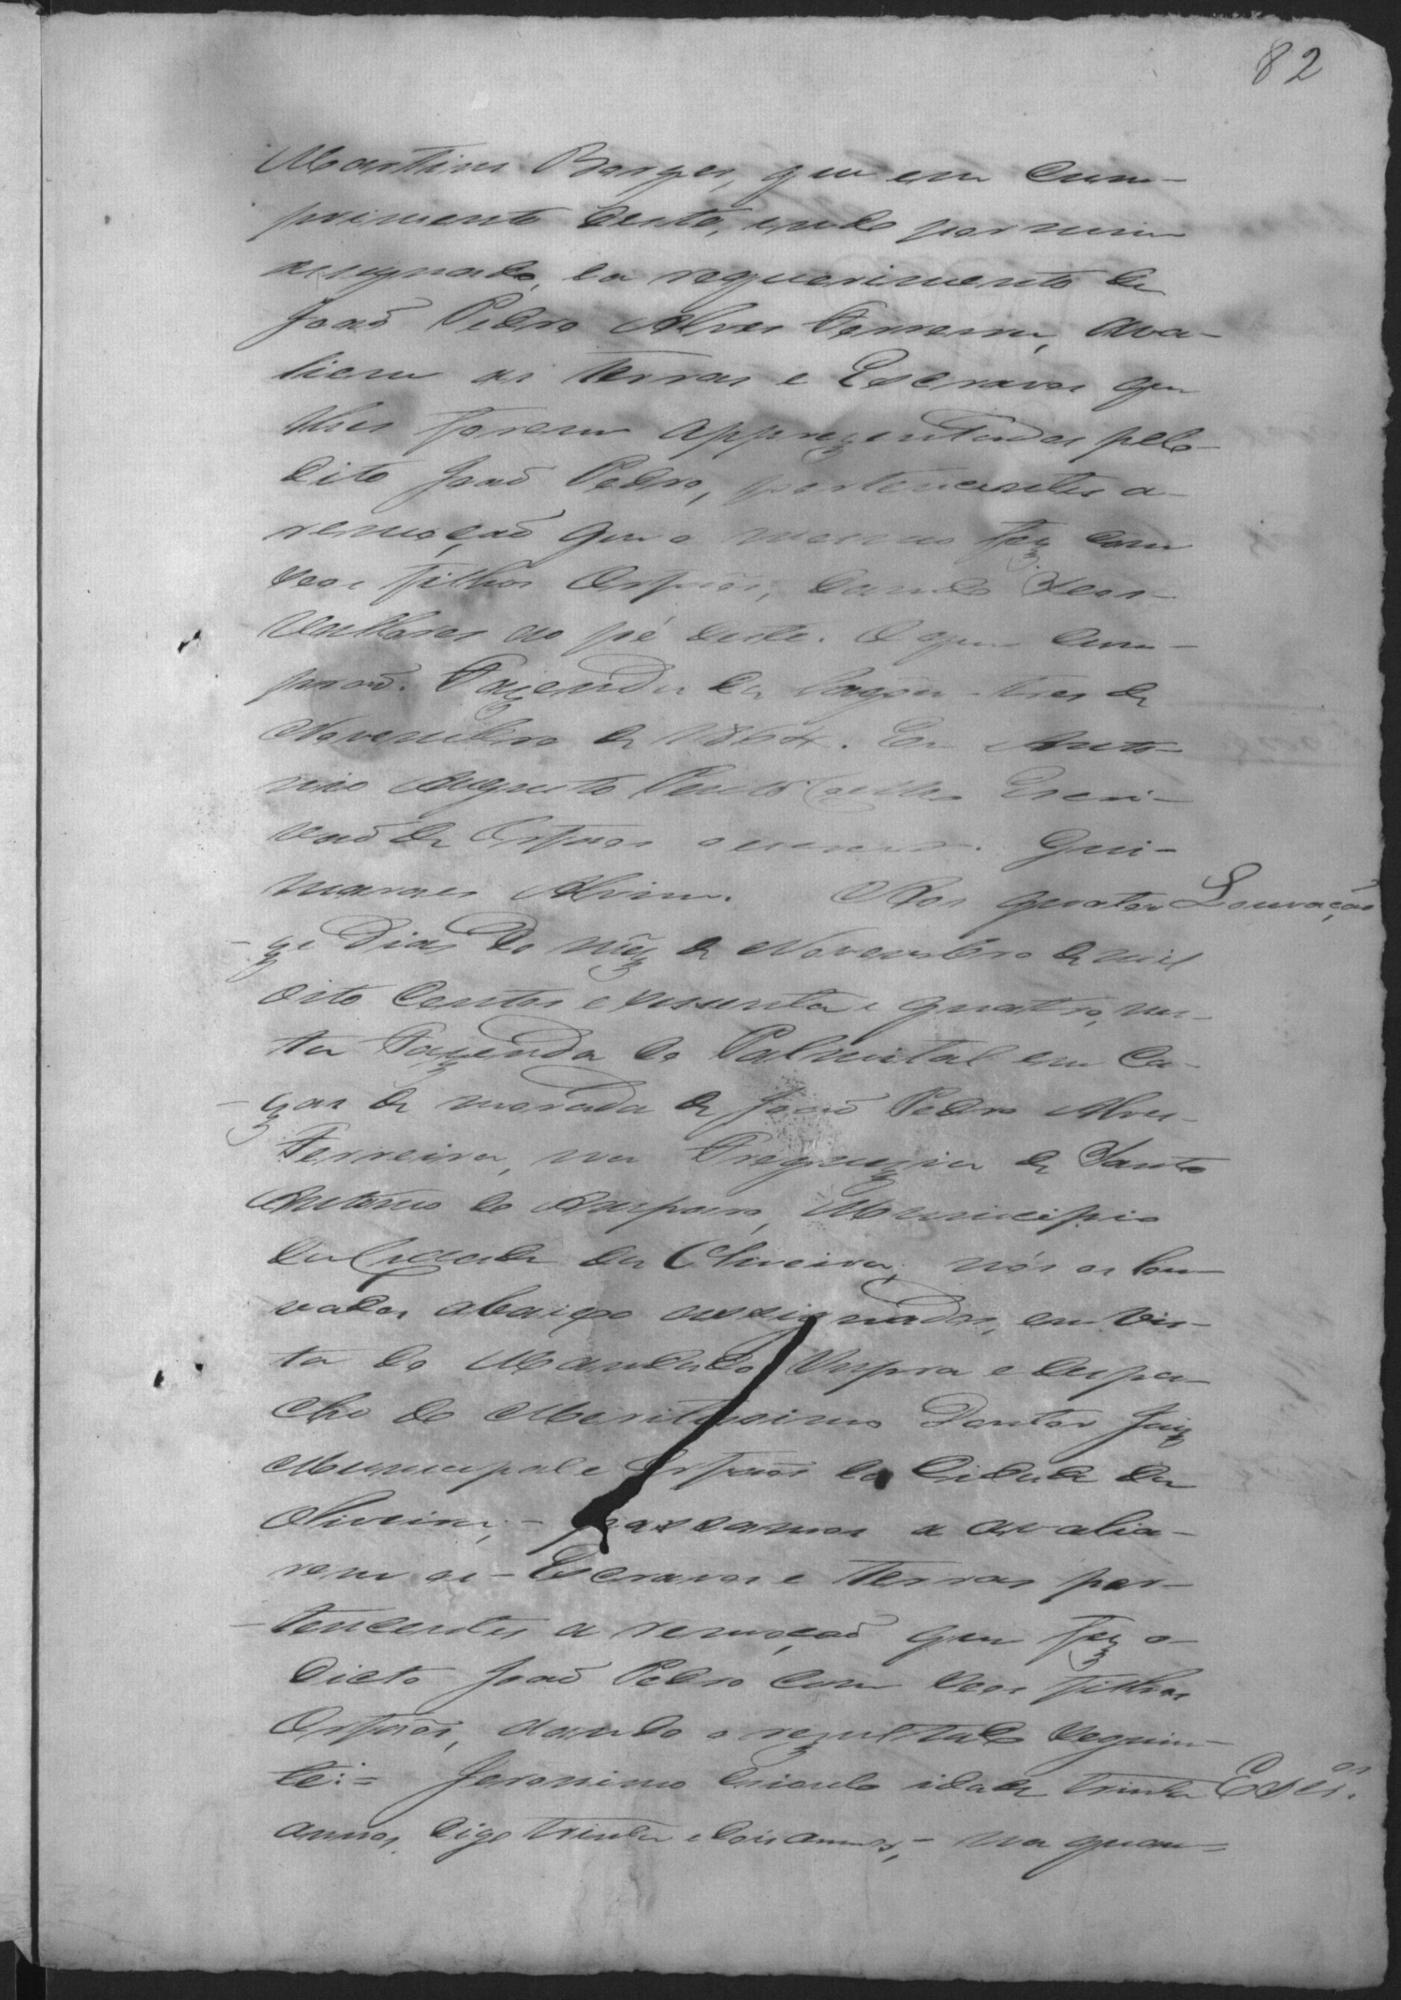 82
Martins Borges, que em cum-
primento deste, indo por mim
assignado, e a requerimento de
João Pedro Alves Ferreira, ava-
liem as terras e Escravos que
lhes forem apprezentados pelo
dito João Pedro, pertencentes a
remoção que o mesmo fez com
seos filhos Orfaos, dando seos
vallores ao pé deste. O que cum-
prão. Fazenda da Lagoa tres de
Novembro de 1864. Eu Anto-
nio Augusto Escri-
vão de Orfaos o escrevi. Gui-
maraes Alvim. Aos quator Louvação
ze dias do mêz de Novembro de mil
oito centos e sessenta e quatro, nes-
ta Fazenda do Palmital em ca-
zas de morada de João Pedro Alves
Ferreira, na Freguezia de Santo
Antonio do Amparo, Municipio
da Cidade da Oliveira, nós os lou-
vados abaixo assignados, em vis-
ta do Mandado supra e despa-
cho do Meritissimo Doutor Juiz
Municipal e Orfaos da Cidade da
Oliveira, - passamos a avalia-
rem os - Escravos e terras per-
tencentes a remoção que fez o
dicto João Pedro com seos filhos
Orfaos, dando o rezultado seguin-
te: = Jeronimo Crioulo idade trinta Escos.
annos, digo trinta e dois annos, - na quan-